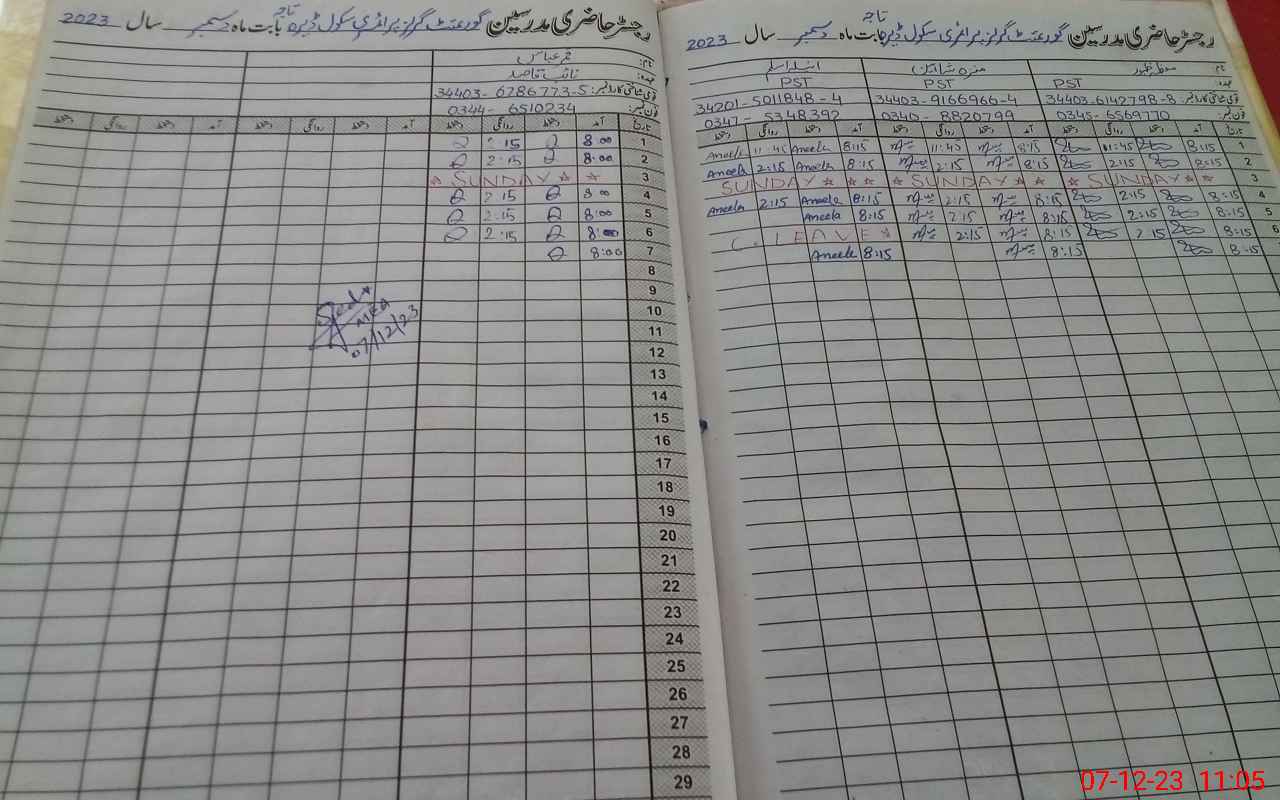 رجسٹر حاضری مدرسین گورنمنٹ گرلز پرائمری سکول ڈیرہ تاجہ بابت ماہ دسمبر سال 2023
نام: 
عہدہ: PST PST PST
قومی شناختی کارڈ نمبر: 34403-6142798-8 34403-9166966-4 34201-5011848-4
فون نمبر: 0345-6569770 0340-8820799 0347-5348392
تاریخ آمد دستخط روانگی دستخط آمد دستخط روانگی دستخط آمد دستخط روانگی دستخط
1 8:15 11:45 8:15 11:45 8:15 Aneela 11:45 Aneela
2 8:15 2:15 8:15 2:15 8:15 Aneela 2:15 Aneela
3 SUNDAY SUNDAY SUNDAY
4 8:15 2:15 8:15 2:15 8:15 Aneela 2:15 Aneela
5 8:15 2:15 8:15 2:15 8:15 Aneela
6 8:15 2:15 8:15 2:15 C. LEAVE
8:15 8:15 8:15 Aneela
رجسٹر حاضری مدرسین گورنمنٹ گرلز پرائمری سکول ڈیرہ تاجہ بابت ماہ دسمبر سال 2023
نام: قمر عباس
عہدہ: نائب قاصد
قومی شناختی کارڈ نمبر: 34403-6286773-5
فون نمبر: 0344-6510234
تاریخ آمد دستخط روانگی دستخط آمد دستخط روانگی دستخط آمد دستخط روانگی دستخط
1 8:00 2:15
2 8:00 2:15
3 SUNDAY
4 8:00 2:15
5 8:00 2:15
6 8:00 2:15
7 8:00
8
9
10
11
12
13
14
15
16
17
18
19
20
21
22
23
24
25
26
27
28
29
MEA
07/12/23
07-12-23 11:05